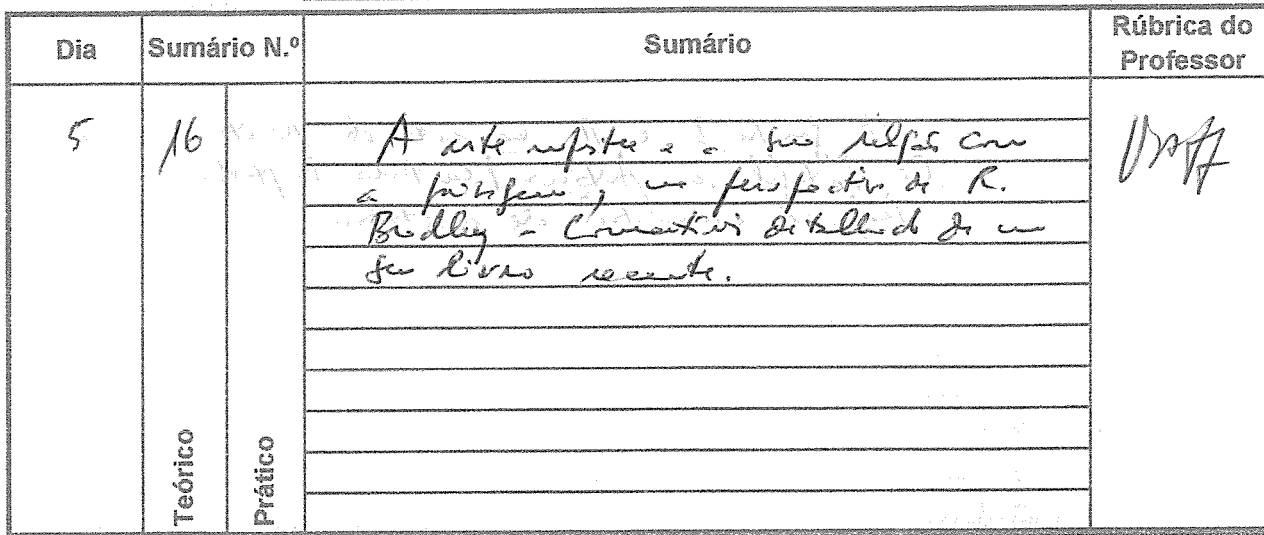 Dia Sumário N.º Sumário Rúbrica do Professor
5 16 A arte rupestre e a sua relação com
a paisagem, na perspectiva de R.
Bradley - Comentário detalhado de um
seu livro recente.
Teórico
Prático